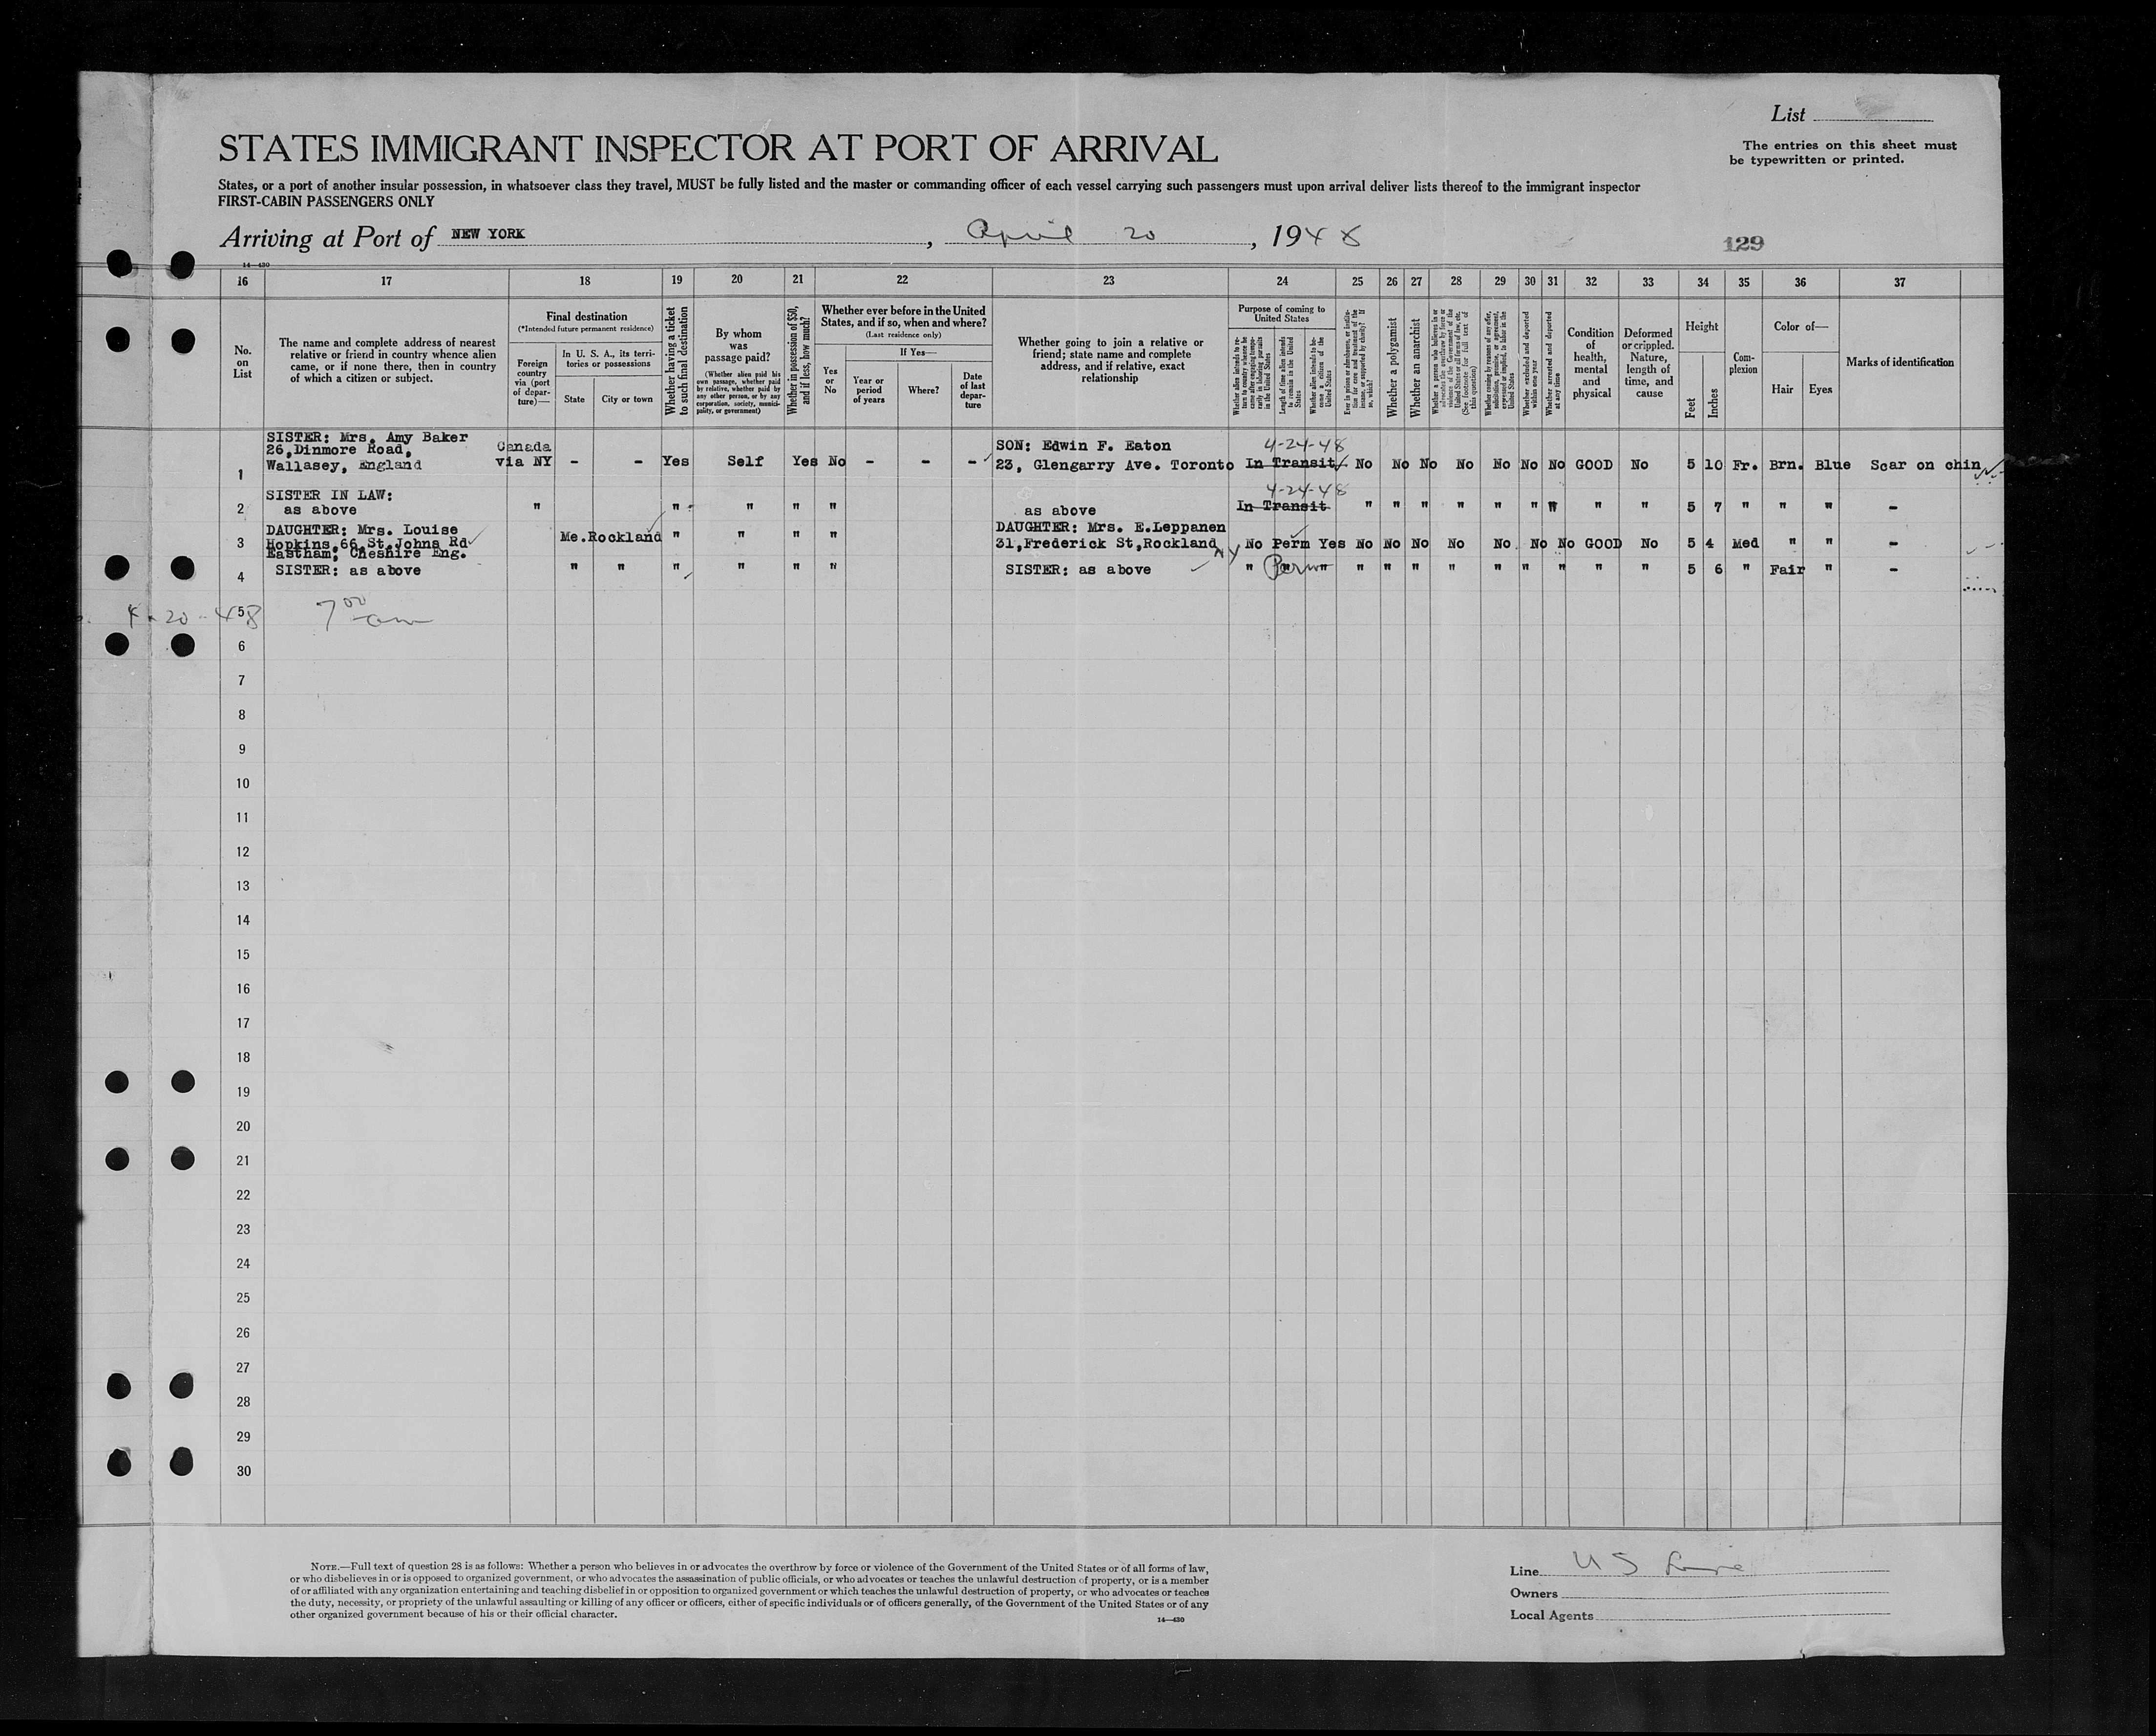 List
The entries on this sheet must
be typewritten or printed.
STATES IMMIGRANT INSPECTOR AT PORT OF ARRIVAL
States, or a port of another insular possession, in whatsoever class they travel, MUST be fully listed and the master or commanding officer of each vessel carrying such passengers must upon arrival deliver lists thereof to the immigrant inspector
FIRST-CABIN PASSENGERS ONLY
Arriving at Port of NEW YORK, April 20, 1948
129
14—430
16 17 18 19 20 21 22 23 24 25 26 27 28 29 30 31 32 33 34 35 36 37
No. on List
The name and complete address of nearest relative or friend in country whence alien came, or if none there, then in country of which a citizen or subject.
Final destination
(*Intended future permanent residence)
Foreign country via (port of departure)—
In U. S. A., its territories or possessions
State
City or town
Whether having a ticket to such final destination
By whom was passage paid?
(Whether alien paid his own passage, whether paid by relative, whether paid by any other person, or by any corporation, society, municipality, or government)
Whether in possession of $50, and if less, how much?
Whether ever before in the United States, and if so, when and where?
(Last residence only)
Yes or No
If Yes—
Year or period of years
Where?
Date of last departure
Whether going to join a relative or friend; state name and complete address, and if relative, exact relationship
Purpose of coming to United States
Length of time alien intends to remain in the United States
Whether alien intends to become a citizen of the United States
Whether a polygamist
Whether an anarchist
(See footnote for full text of this question)
Whether excluded and deported within one year
Whether arrested and deported at any time
Condition of health, mental and physical
Deformed or crippled. Nature, length of time, and cause
Height
Feet
Inches
Complexion
Color of—
Hair
Eyes
Marks of identification
SISTER: Mrs. Amy Baker
26,Dinmore Road,
Wallasey, England
1 Canada via NY - - Yes Self Yes No - - - SON: Edwin F. Eaton
23, Glengarry Ave. Toronto 4-24-48 In Transit No No No No No No No GOOD No 5 10 Fr. Brn. Blue Scar on chin
SISTER IN LAW:
2 as above " " " " " as above 4-24-48 In Transit " " " " " " " " " 5 7 " " " -
DAUGHTER: Mrs. Louise
Hopkins,66,St.Johns Rd
Eastham, Cheshire Eng.
3 Me. Rockland " " " " DAUGHTER: Mrs. E.Leppanen
31,Frederick St,Rockland No Perm Yes No No No No No No No GOOD No 5 4 Med " " -
4 SISTER: as above " " " " " " SISTER: as above " Perm " " " " " " " " " " 5 6 " Fair " -
4-20-48 7 00 am
5
6
7
8
9
10
11
12
13
14
15
16
17
18
19
20
21
22
23
24
25
26
27
28
29
30
NOTE.—Full text of question 28 is as follows: Whether a person who believes in or advocates the overthrow by force or violence of the Government of the United States or of all forms of law,
or who disbelieves in or is opposed to organized government, or who advocates the assassination of public officials, or who advocates or teaches the unlawful destruction of property, or is a member
of or affiliated with any organization entertaining and teaching disbelief in or opposition to organized government or which teaches the unlawful destruction of property, or who advocates or teaches
the duty, necessity, or propriety of the unlawful assaulting or killing of any officer or officers, either of specific individuals or of officers generally, of the Government of the United States or of any
other organized government because of his or their official character.
14—430
Line US Line
Owners
Local Agents